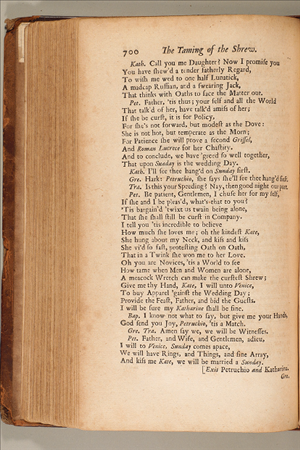 700 The Taming of the Shrew.
Kath. Call you me Daughter? Now I promise you
You have shew'd a tender fatherly Regard,
To wish me wed to one half Lunatick,
A madcap Ruffian, and a swearing Jack,
That thinks with Oaths to face the Matter out.
Pet. Father, 'tis thus; your self and all the World
That talk'd of her, have talk'd amiss of her;
If she be curst, it is for Policy,
For she's not forward, but modest as the Dove:
She is not hot, but temperate as the Morn;
For Patience she will prove a second Grissel,
And Roman Lucrece for her Chastity;
And to conclude, we have 'greed so well together,
That upon Sunday is the wedding Day.
Kath. I'll see thee hang'd on Sunday first.
Gre. Hark: Petruchio, she says she'll see thee hang'd first.
Tra. Is this your Speeding? Nay, then good night our part.
Pet. Be patient, Gentlemen, I chuse her for my self,
If she and I be pleas'd, what's that to you?
'Tis bargain'd 'twixt us twain being alone,
That she shall still be curst in Company.
I tell you 'tis incredible to believe
How much she loves me; oh the kindest Kate,
She hung about my Neck, and kiss and kiss
She vi'd so fast, protesting Oath on Oath,
That in a Twink she won me to her Love.
Oh you are Novices, 'tis a World to see
How tame when Men and Women are alone,
A meacock Wretch can make the curstest Shrew;
Give me thy Hand, Kate, I will unto Venice,
To buy Apparel 'gainst the Wedding Day;
Provide the Feast, Father, and bid the Guests,
I will be sure my Katharine shall be fine.
Bap. I know not what to say, but give me your Hands,
God send you Joy, Petruchio, 'tis a Match.
Gre. Tra. Amen say we, we will be Witnesses.
Pet. Father, and Wife, and Gentlemen, adieu,
I will to Venice, Sunday comes apace,
We will have Rings, and Things, and fine Array,
And kiss me Kate, we will be married a Sunday.
[Exit Petruchio and Katharine.
Gre.